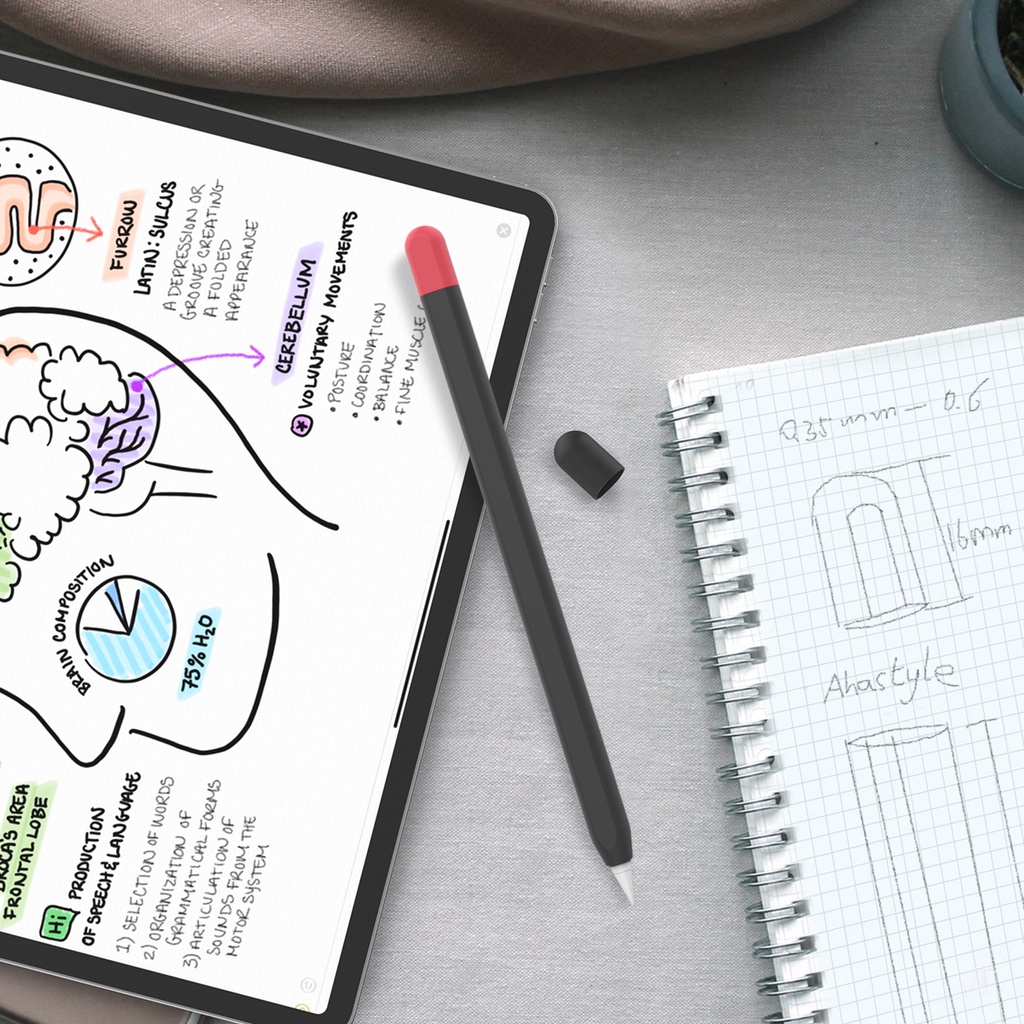 FURROW
LATIN: SULCUS
A DEPRESSION OR
GROOVE CREATING
A FOLDED
APPEARANCE
CEREBELLUM
VOLUNTARY MOVEMENTS
• POSTURE
• COORDINATION
• BALANCE
• FINE MUSCLE
BRAIN COMPOSITION
75% H₂O
BROCA'S AREA
FRONTAL LOBE
Hi
PRODUCTION
OF SPEECH & LANGUAGE
1) SELECTION OF WORDS
2) ORGANIZATION OF
GRAMMATICAL FORMS
3) ARTICULATION OF
SOUNDS FROM THE
MOTOR SYSTEM
0.35mm — 0.6
16mm
Ahastyle